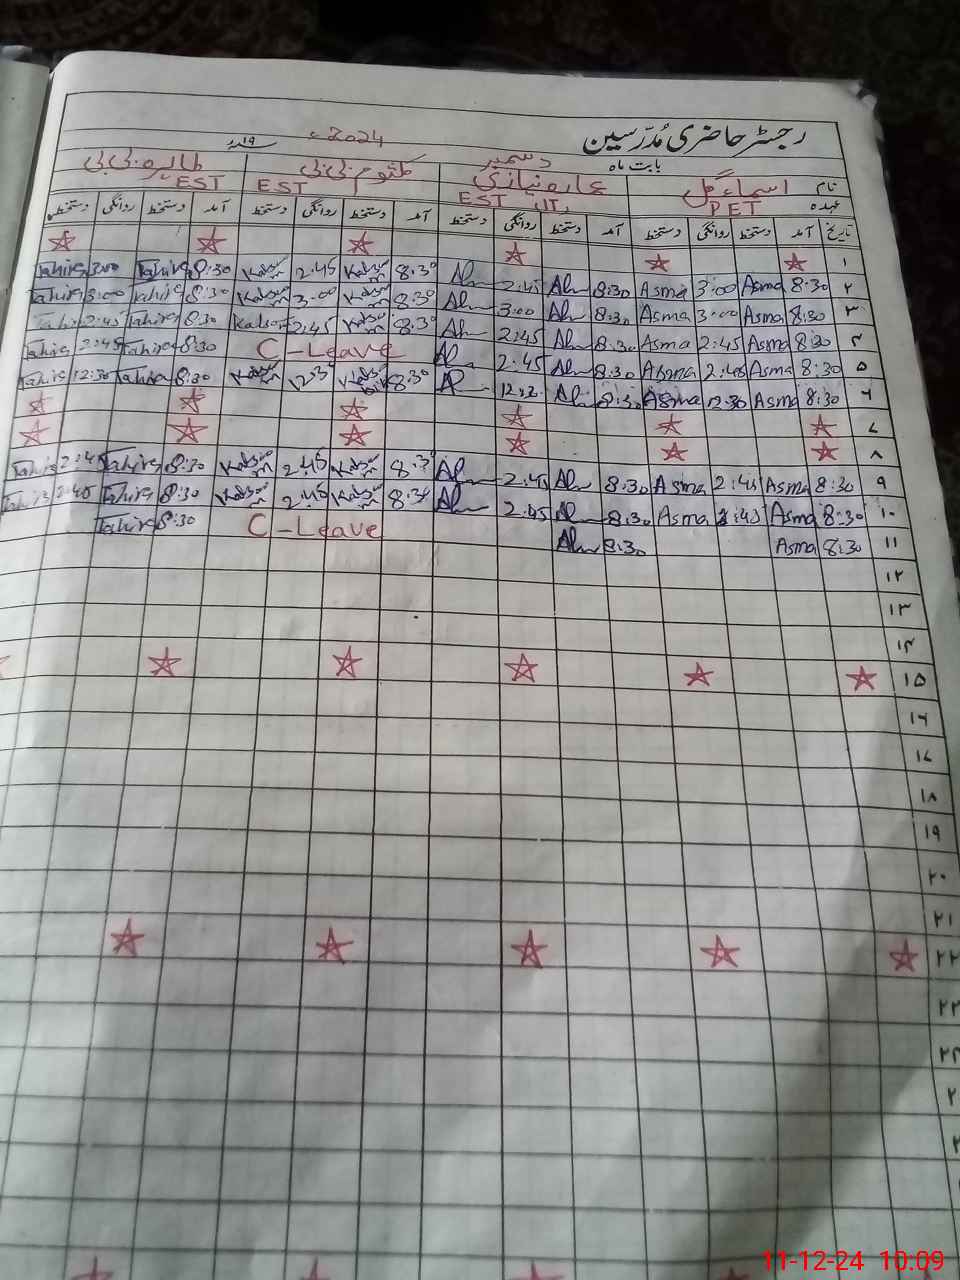 رجسٹر حاضری مُدرّسین
بابت ماہ دسمبر 2024ء
نام اسماء گل عماره نیازی کلثوم بی بی طاہرہ بی بی
عہدہ PET EST IT EST EST
تاریخ آمد دستخط روانگی دستخط آمد دستخط روانگی دستخط آمد دستخط روانگی دستخط آمد دستخط روانگی دستخط
۱
۲ 8:30 Asma 3:00 Asma 8:30 2:45 8:30 Kalsoom 2:45 Kalsoom 8:30 Tahira 3:00 Tahira
۳ 8:30 Asma 3:00 Asma 8:30 3:00 8:30 Kalsoom 3:00 Kalsoom 8:30 Tahira 3:00 Tahira
۴ 8:30 Asma 2:45 Asma 8:30 2:45 8:30 Kalsoom 2:45 Kalsoom 8:30 Tahira 2:45 Tahira
۵ 8:30 Asma 2:45 Asma 8:30 2:45 C-Leave 8:30 Tahira 2:45 Tahira
۶ 8:30 Asma 12:30 Asma 8:30 8:30 12:3 Kalsoom 8:30 Tahira 12:30 Tahira
۷
۸
۹ 8:30 Asma 2:45 Asma 8:30 2:45 8:3 Kalsoom 2:45 Kalsoom 8:30 Tahira 2:4 Tahira
۱۰ 8:30 Asma 2:45 Asma 8:30 2:45 8:30 Kalsoom 2:45 Kalsoom 8:30 Tahira 2:45 Tahira
۱۱ 8:30 Asma 8:30 C-Leave 8:30 Tahira
۱۲
۱۳
۱۴
۱۵
۱۶
۱۷
۱۸
۱۹
۲۰
۲۱
۲۲
۲۳
11-12-24 10:09